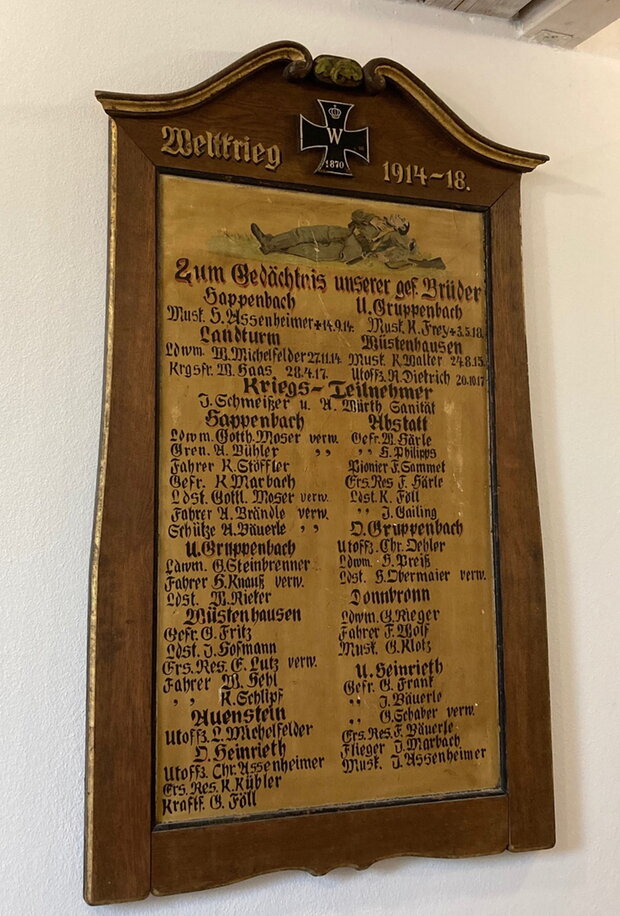 Weltkrieg 1914-18.
W
1870
Zum Gedächtnis unserer gef. Brüder
Gappenbach
Musk. H. Assenheimer + 14.9.14.
Landturm
Ldwm. W. Michelfelder 27.11.14
Krgsfr. W. Haas 28.4.17.
U. Gruppenbach
Musk. K. Frey + 3.5.18.
Wüstenhausen
Musk. K. Walter 24.8.15.
Utoffz. R. Dietrich 20.10.17
Kriegs-Teilnehmer
J. Schmeißer u. A. Würth Sanität
Gappenbach
Ldwm. Gotth. Moser verw.
Gren. A. Bühler „
Fahrer K. Stöffler
Gefr. K. Marbach
Ldst. Gottl. Moser verw.
Fahrer A. Brändle verw.
Schütze A. Bäuerle „
U. Gruppenbach
Ldwm. G. Steinbrenner
Fahrer H. Knauß verw.
Ldst. W. Rieker
Wüstenhausen
Gefr. G. Fritz
Ldst. J. Hofmann
Ers. Res. E. Lutz verw.
Fahrer W. Hehl
„ „ K. Schlipf
Auenstein
Utoffz. L. Michelfelder
O. Heinrieth
Utoffz. Chr. Assenheimer
Ers. Res. K. Kübler
Kraftf. G. Föll
Abstatt
Gefr. W. Härle
„ H. Philipps
Pionier F. Sammet
Ers. Res F. Härle
Ldst. K. Föll
„ J. Gailing
O. Gruppenbach
Utoffz. Chr. Oehler
Ldwm. H. Preiß
Ldst. H. Obermaier verw.
Donnbronn
Ldwm. G. Rieger
Fahrer F. Wolf
Musk. G. Klotz
U. Heinrieth
Gefr. G. Frank
„ J. Bäuerle
„ G. Schaber verw.
Ers. Res. F. Bäuerle
Flieger J. Marbach
Musk. J. Assenheimer